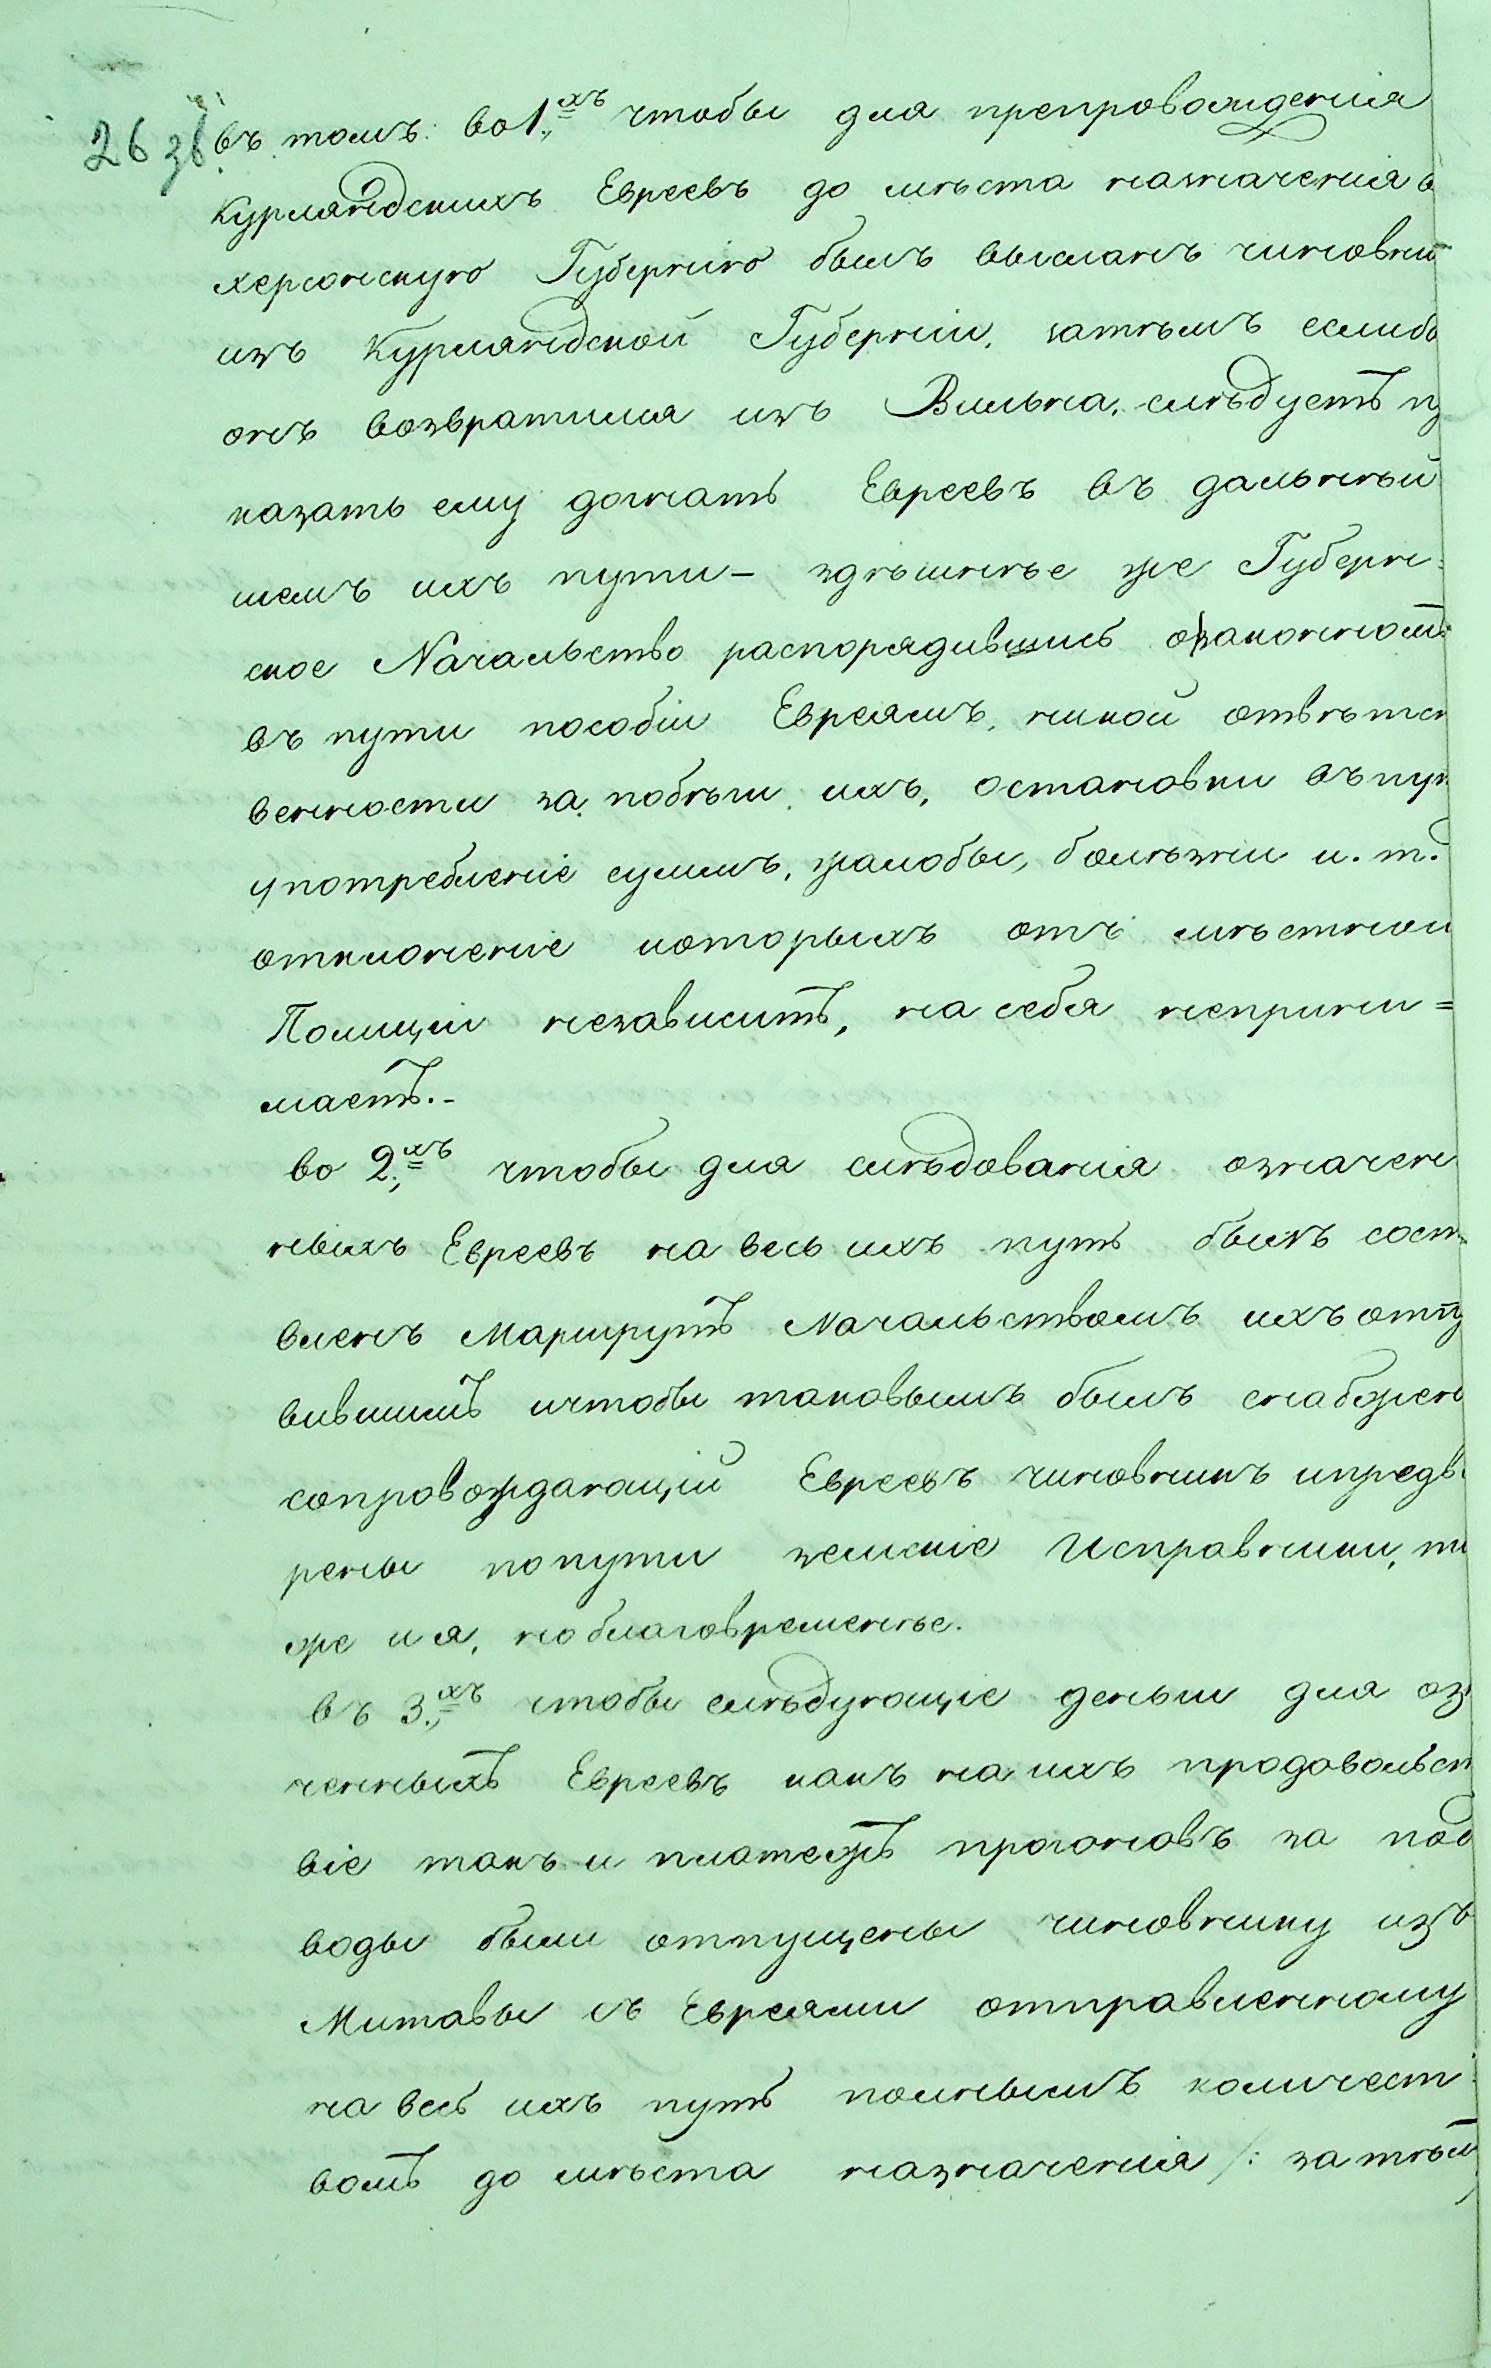 26 зв.
въ томъ: во 1.хъ чтобы для препровожденія
Курляндскихъ Евреевъ до мѣста назначенія в
херсонскую Губернію былъ высланъ чиновни
изъ Курляндской Губерніи, затѣмъ еслибъ
онъ возвратился изъ Вильна, слѣдуетъ п
казать ему догнать Евреевъ въ дальнѣй
шемъ ихъ пути – здѣшнѣе же Губерн:
ское Начальство распорядившись о законномъ
въ пути пособіи Евреямъ, никой отвѣтс
венности за побѣги ихъ, остановки въ пут
употребленіе суммъ, жалобы, болѣзни и. т. д
отклоненіе которыхъ отъ мѣстной
Полиціи независитъ, на себя неприни=
маетъ.–
во 2.хъ чтобы для слѣдованія означен
ныхъ Евреевъ на весь ихъ путь былъ сост
вленъ Маршрутъ Начальствомъ ихъ отп
вившимъ ичтобы таковымъ былъ снабжен
сопровождающій Евреевъ чиновникъ ипредв
рены попути земскіе Исправники, т
же и я, но благовременнѣе.
въ 3.хъ чтобы слѣдующіе деньги для оз
ченныхъ Евреевъ какъ на ихъ продовольст
віе такъ и платежъ прогоновъ за под
воды были отпущены чиновнику изъ
Митавы съ Евреями отправленному
на весь ихъ путь полнымъ количест:
вомъ до мѣста назначенія /: за тѣм